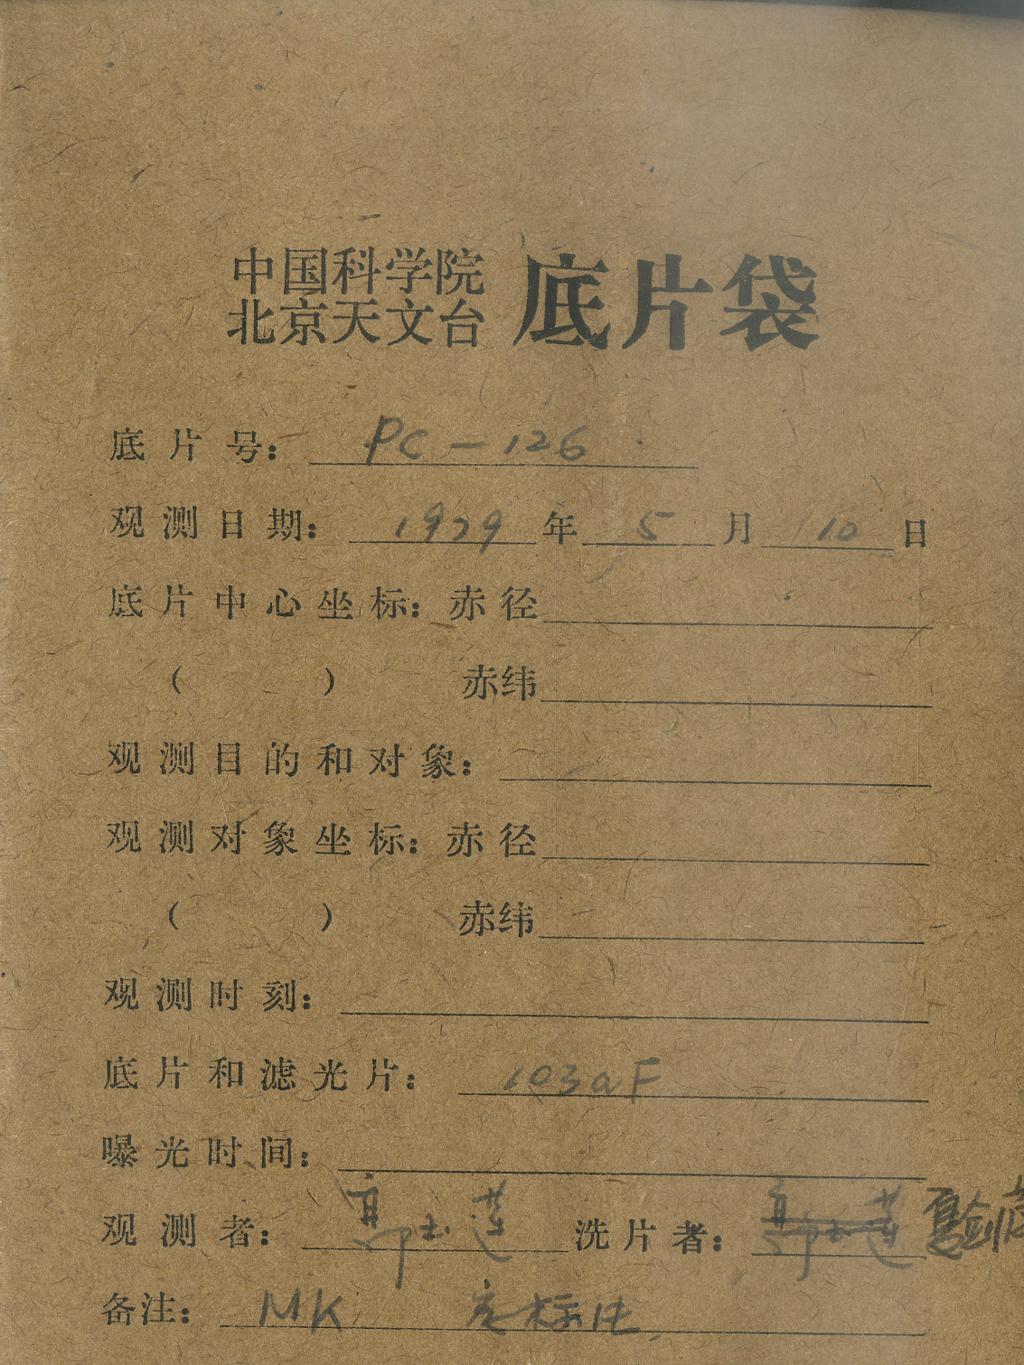 中国科学院
北京天文台 底片袋
底片号: PC-126
观测日期: 1979年5月10日
底片中心坐标: 赤径
( ) 赤纬
观测目的和对象:
观测对象坐标: 赤径
( ) 赤纬
观测时刻:
底片和滤光片: 103aF
曝光时间:
观测者: 郭玉莲 洗片者: 郭玉莲
备注: MK 定标